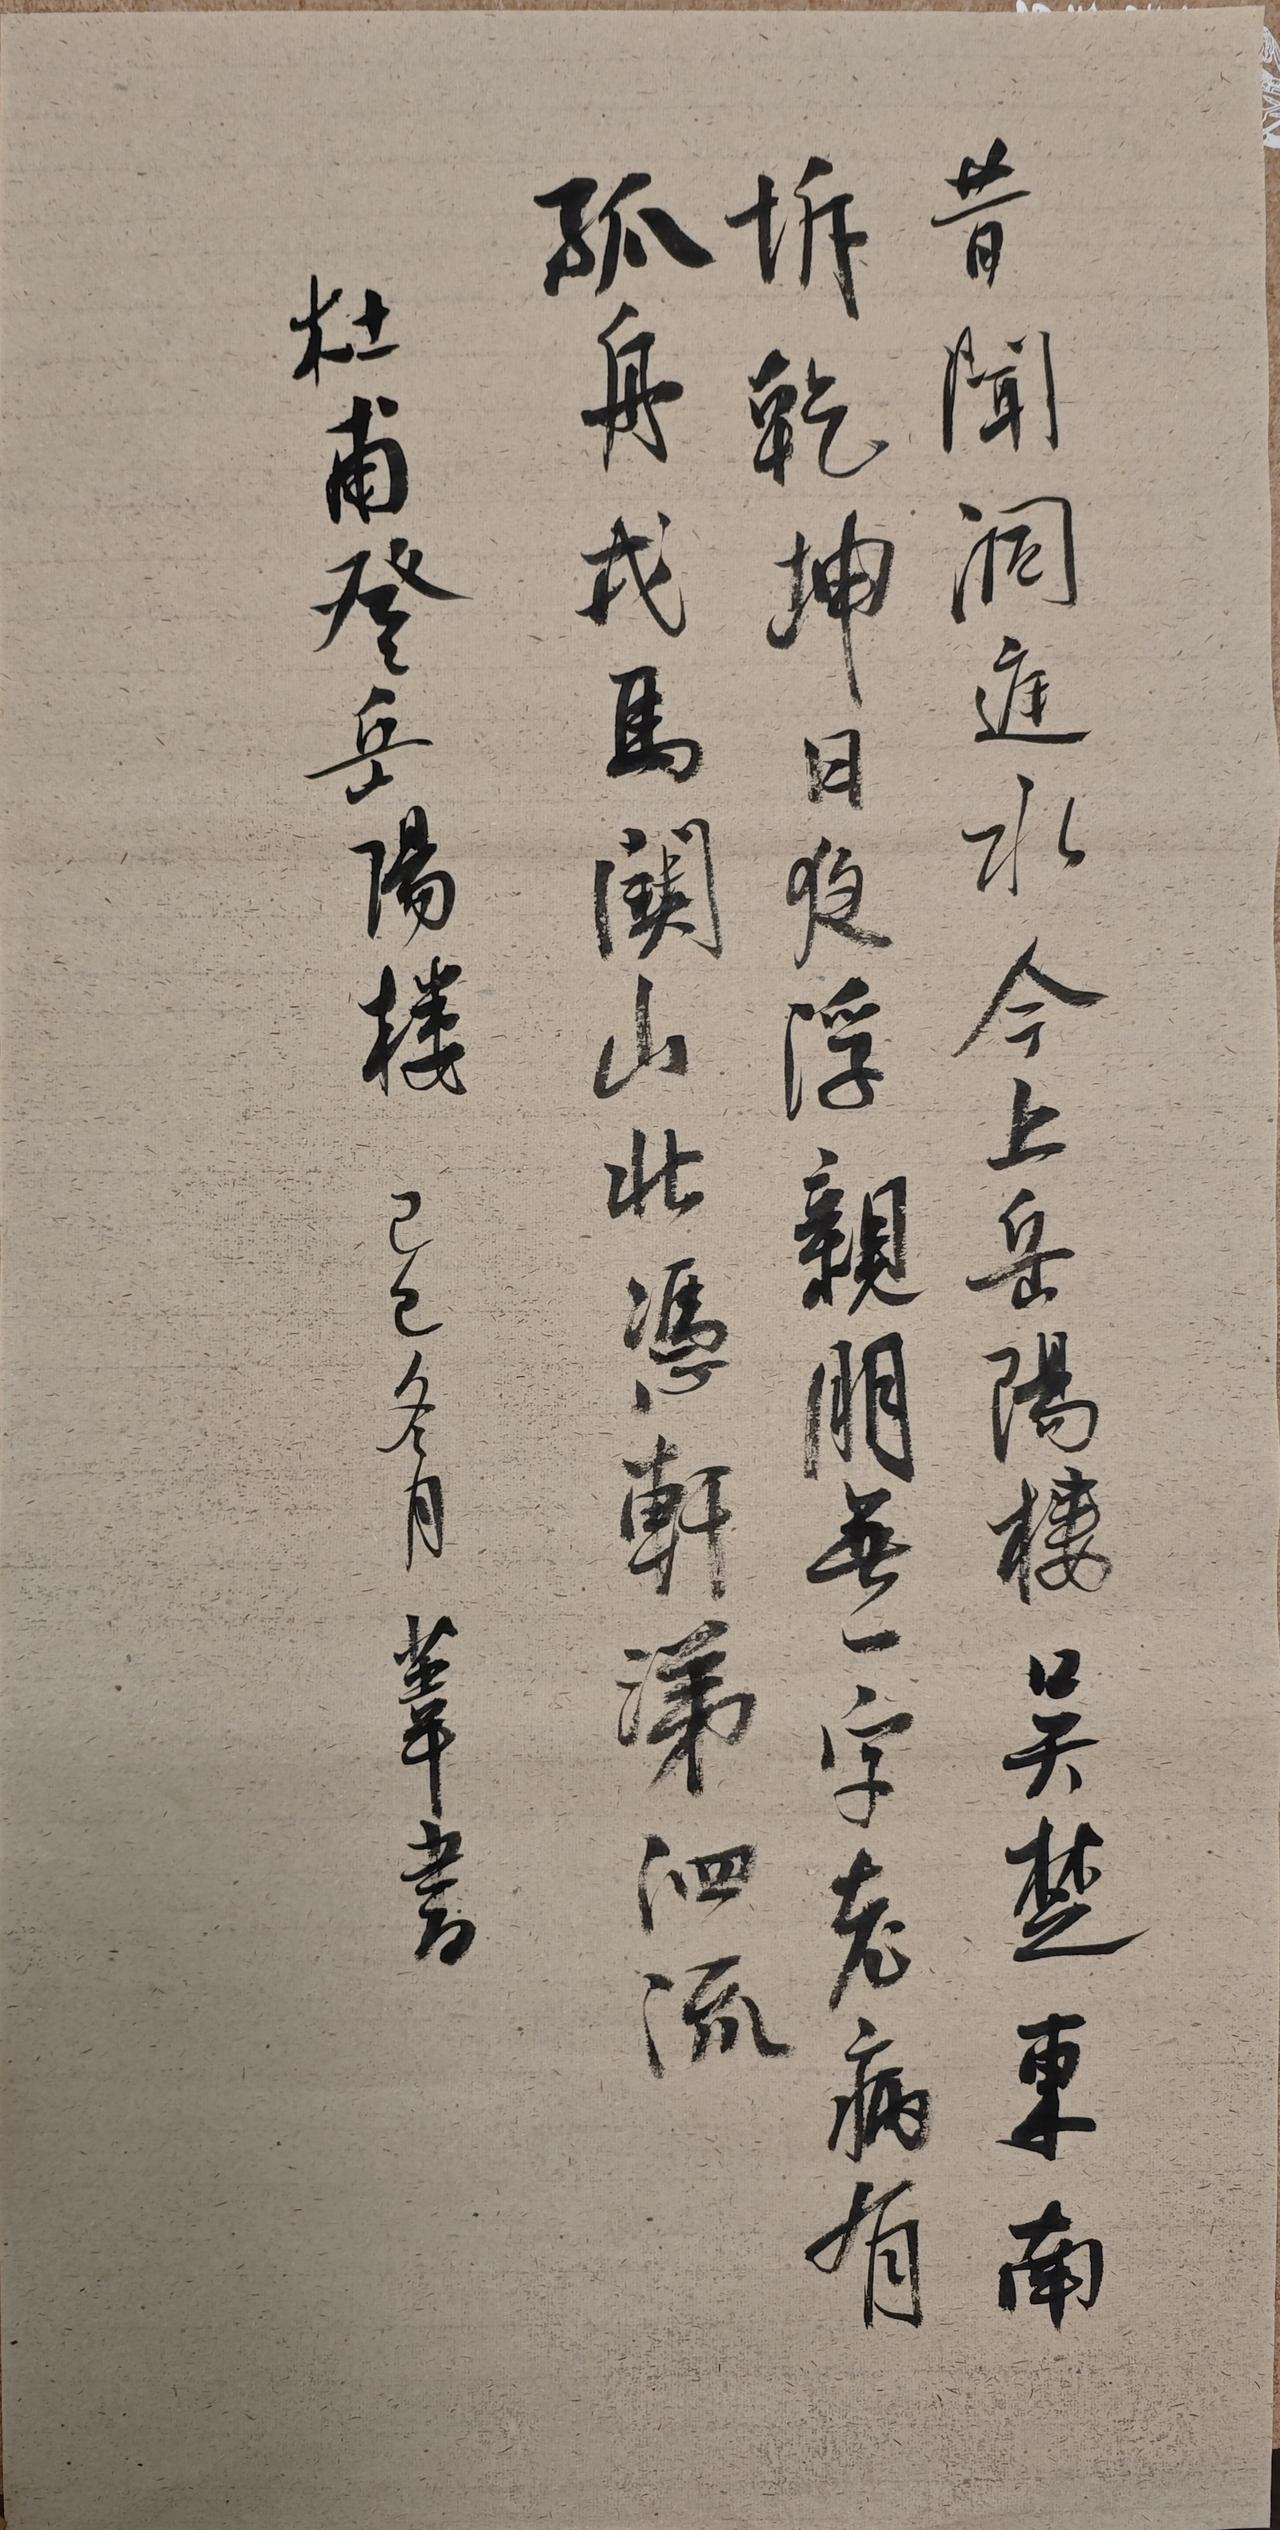 昔聞洞庭水今上岳陽樓吳楚東南
坼乾坤日夜浮親朋無一字老病有
孤舟戎馬關山北憑軒涕泗流
杜甫登岳陽樓 己巳冬月 書